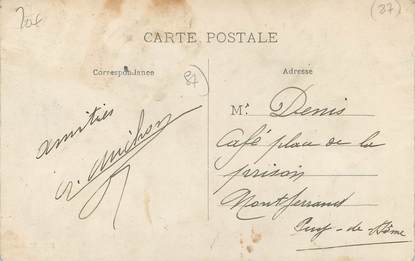 (87)
CARTE POSTALE
Correspondance
Adresse
87
amitiés
Mr. Denis
Café place de la
prison
Montferrand
Puy-de-Dôme